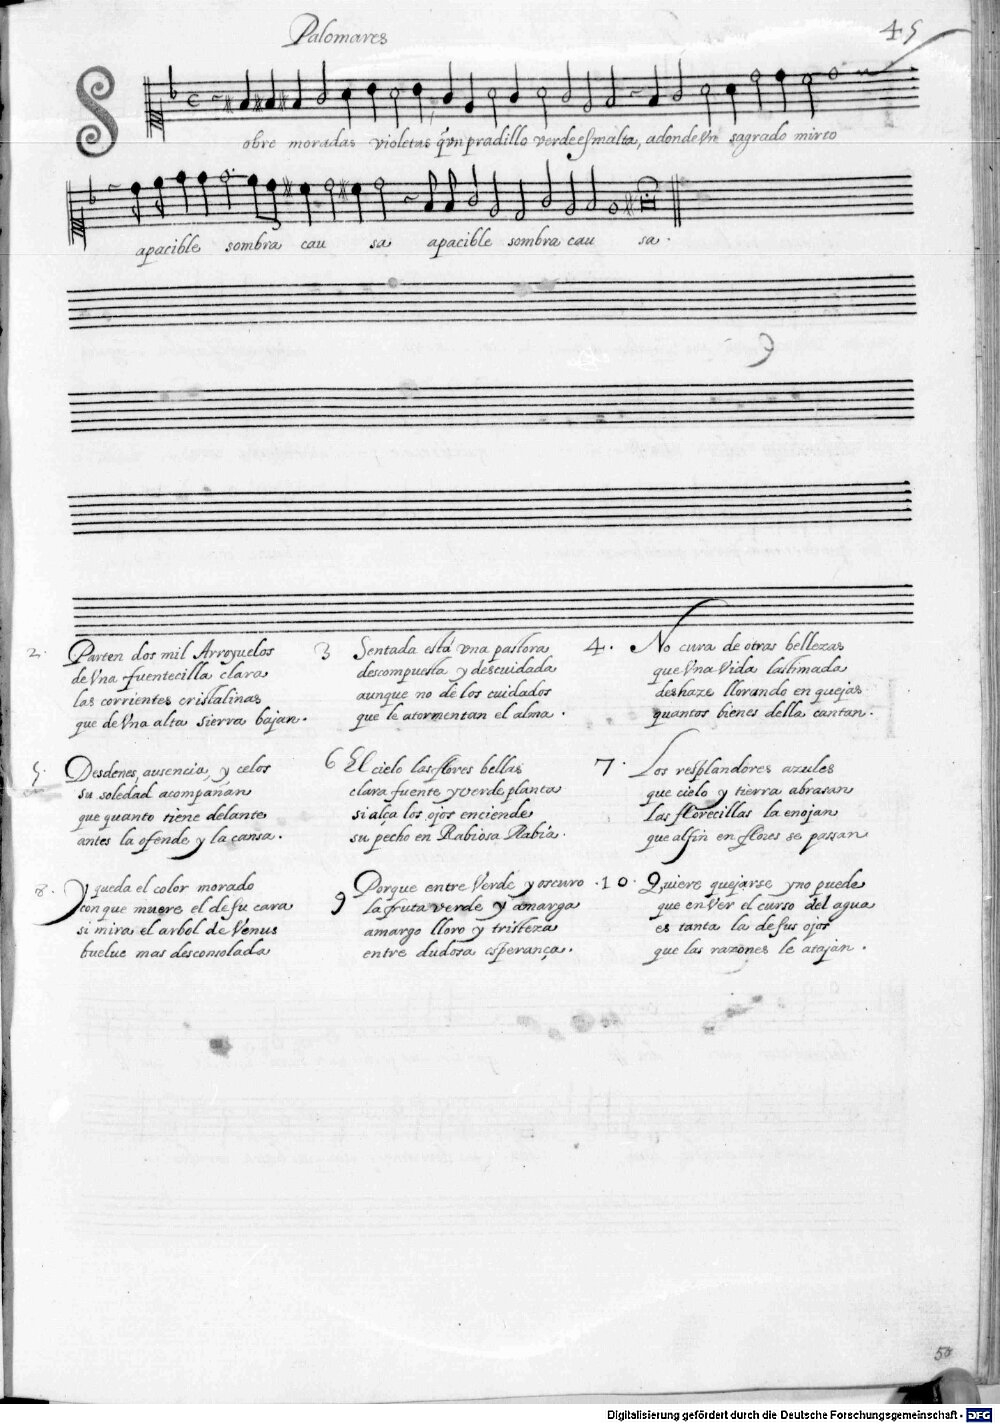 Palomares
45
Sobre moradas violetas q̃ vn pradillo verde esmalta, adonde vn sagrado mirto
apacible sombra cau sa apacible sombra cau sa.
2. Parten dos mil Arroyuelos
de vna fuentecilla clara
las corrientes cristalinas
que de vna alta sierra bajan.
3 Sentada está vna pastora
descompuesta y descuidada
aunque no de los cuidados
que le atormentan el alma.
4. No cura de otras bellezas
que vna vida lastimada
deshaze llorando en quejas
quantos bienes della cantan.
5. Desdenes, ausencia, y celos
su soledad acompañan
que quanto tiene delante
antes la ofende y la cansa.
6 El cielo las flores bellas
clara fuente y verde planta
si alça los ojos enciende
su pecho en Rabiosa Rabia.
7. Los resplandores azules
que cielo y tierra abrasan
las florecillas la enojan
que al fin en flores se passan
8. Y queda el color morado
con que muere el de su cara
si mira el arbol de Venus
buelue mas desconsolada
9 Porque entre verde y oscuro
la fruta verde y amarga
amargo lloro y tristeza
entre dudosa esperança.
10. Quiere quejarse y no puede
que en ver el curso del agua
es tanta la de sus ojos
que las razones le atajan.
50
Digitalisierung gefördert durch die Deutsche Forschungsgemeinschaft - DFG